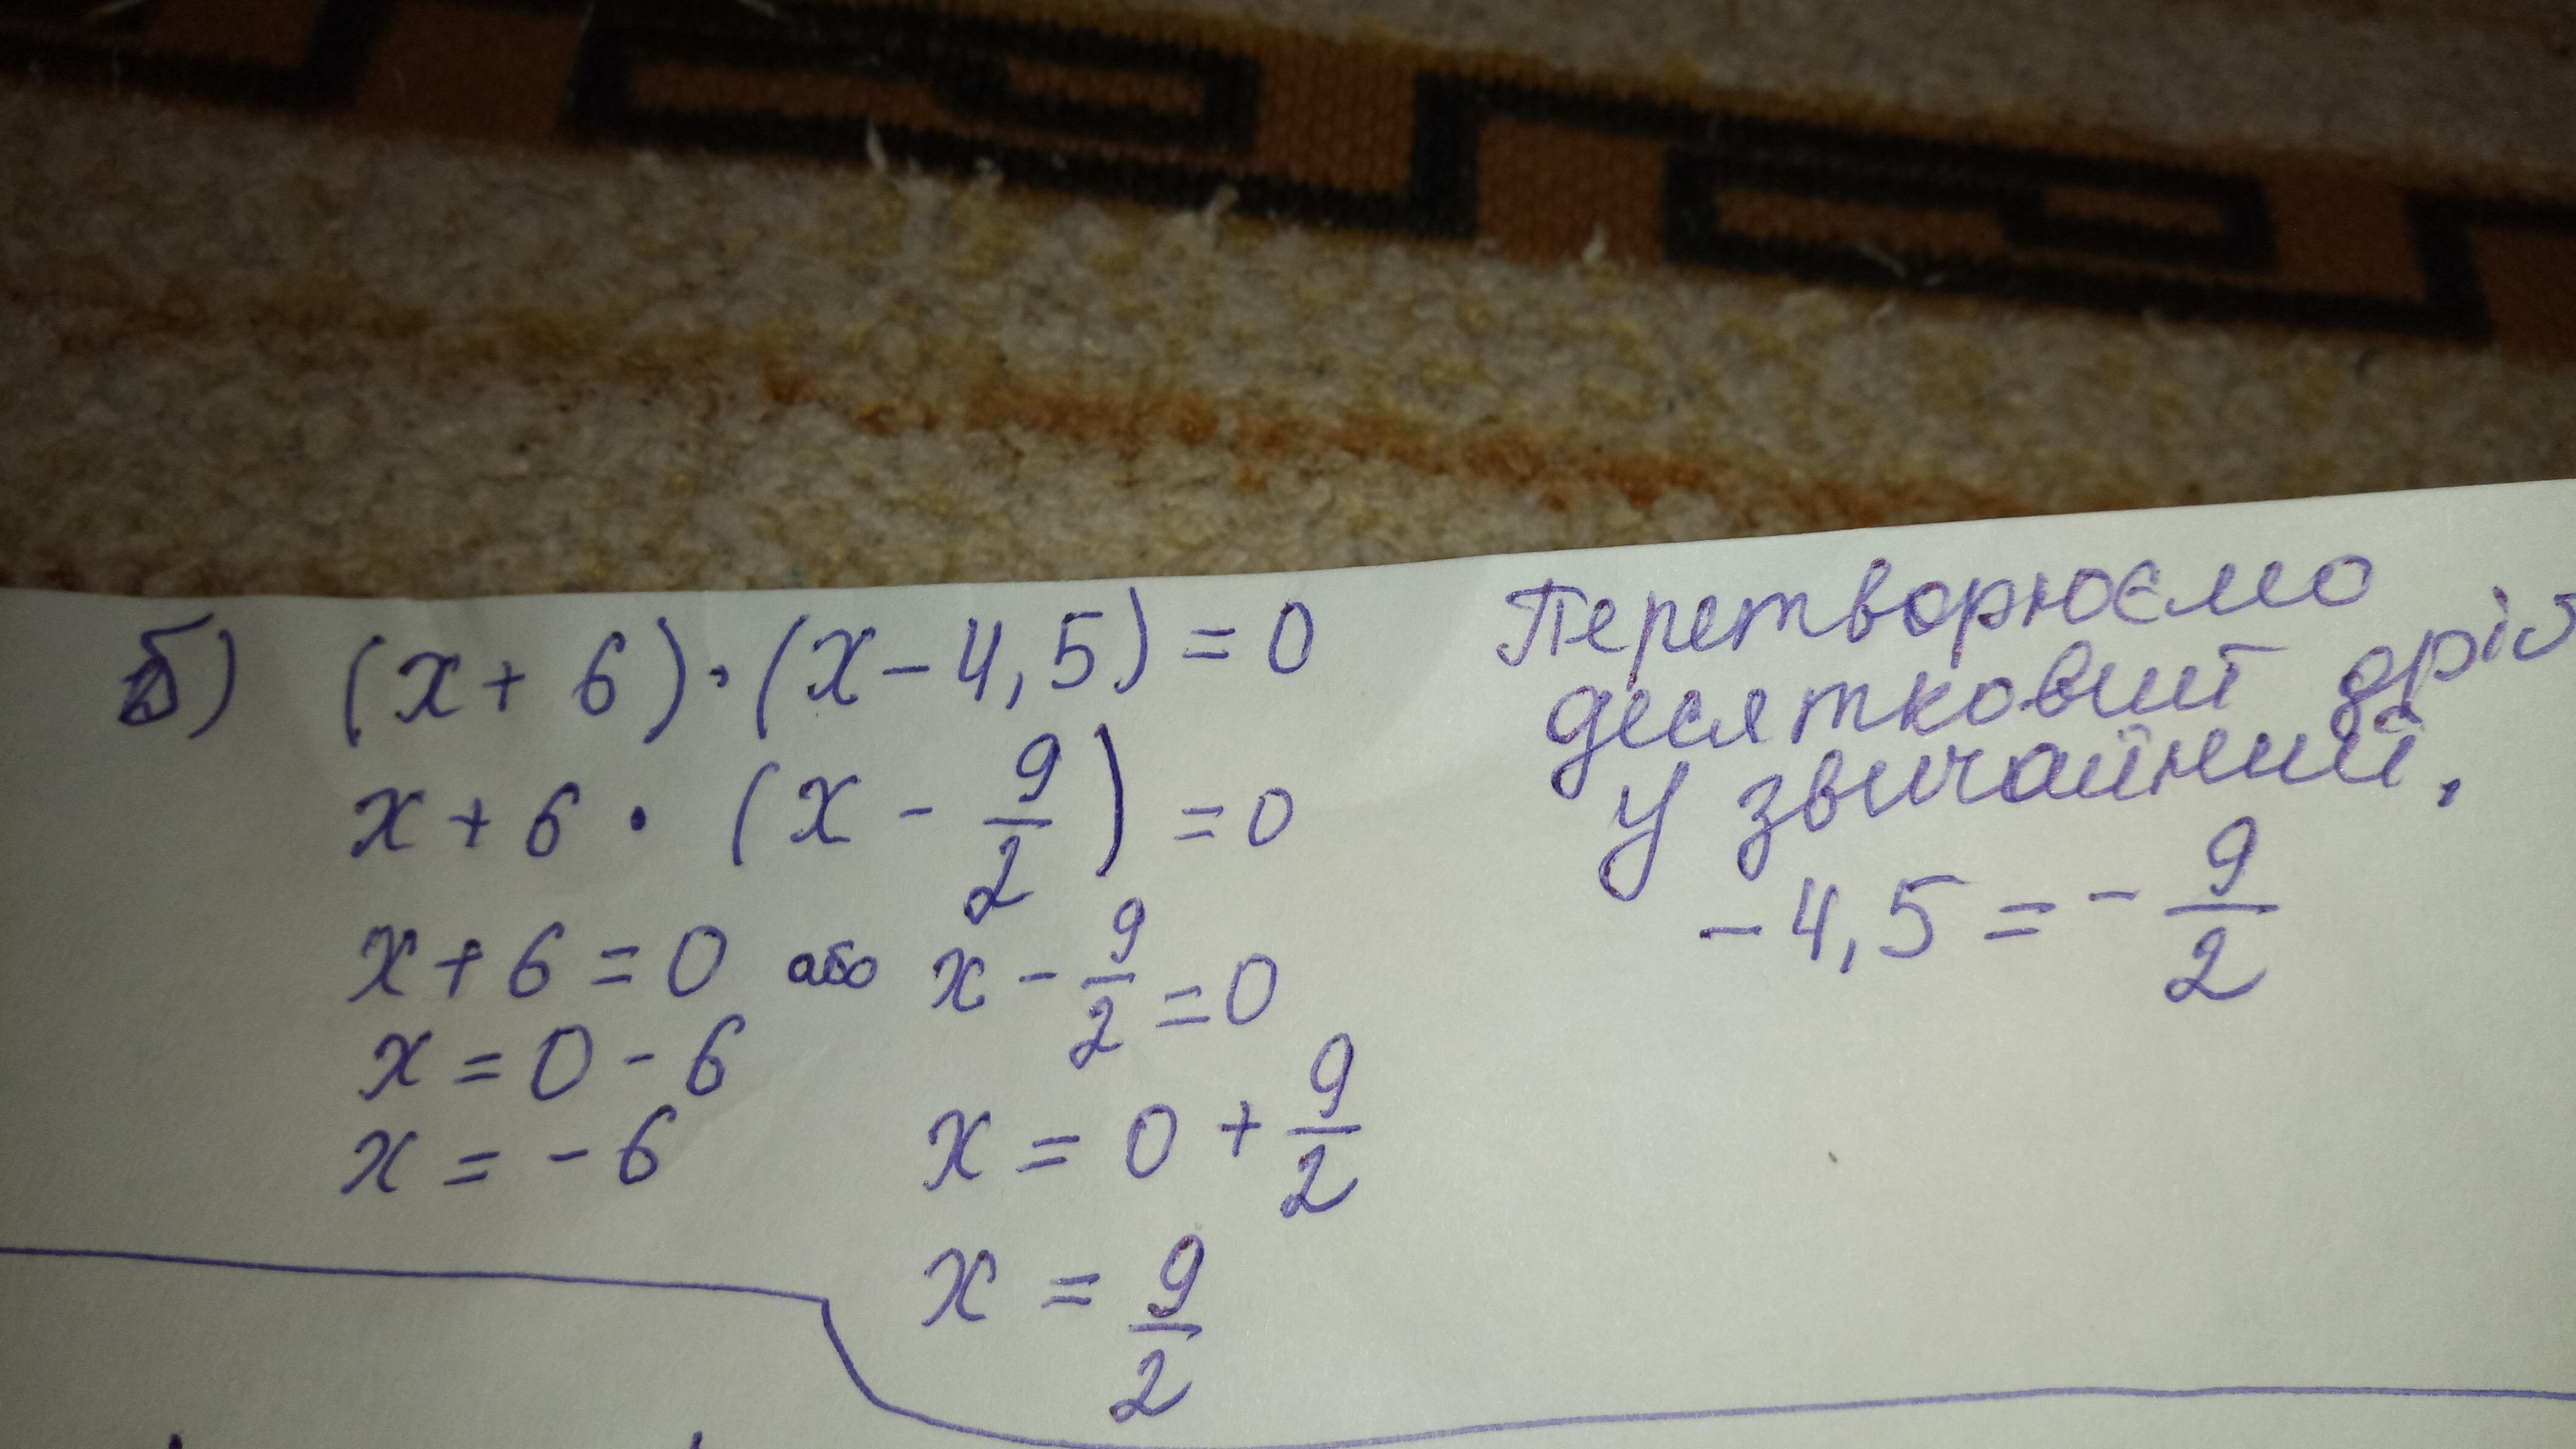 б) (x + 6) · (x − 4,5) = 0
x + 6 · (x − 9/2) = 0
x + 6 = 0 або x − 9/2 = 0
x = 0 − 6
x = − 6
x = 0 + 9/2
x = 9/2
Перетворюємо
десятковий дріб
у звичайний.
− 4,5 = − 9/2